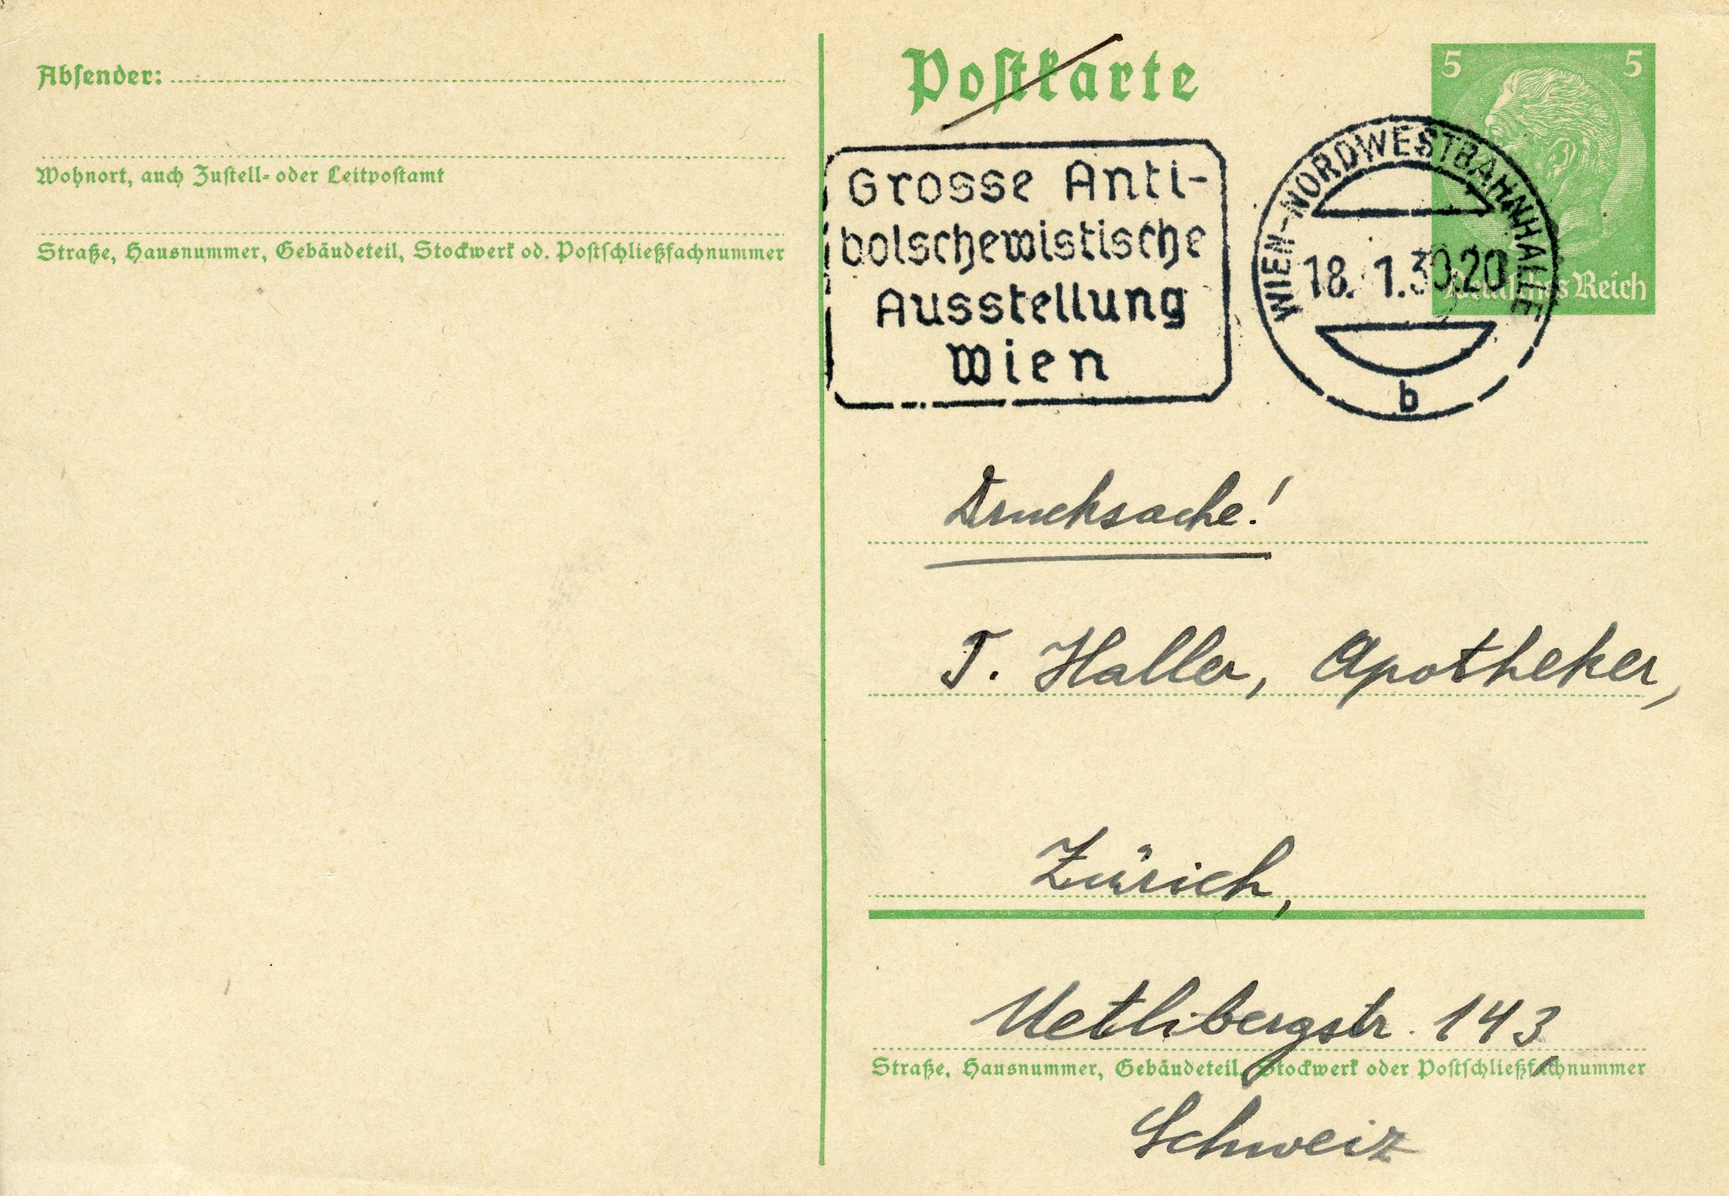 Absender:
Wohnort, auch Zustell- oder Leitpostamt
Straße, Hausnummer, Gebäudeteil, Stockwerk od. Postschließfachnummer
Postkarte
5 5
Deutsches Reich
Grosse Anti-
bolschewistische
Ausstellung
Wien
WIEN-NORDWESTBAHNHALLE
18. 1.39.20
b
Drucksache!
T. Haller, Apotheker,
Zürich,
Uetlibergstr. 143,
Straße, Hausnummer, Gebäudeteil, Stockwerk oder Postschließfachnummer
Schweiz